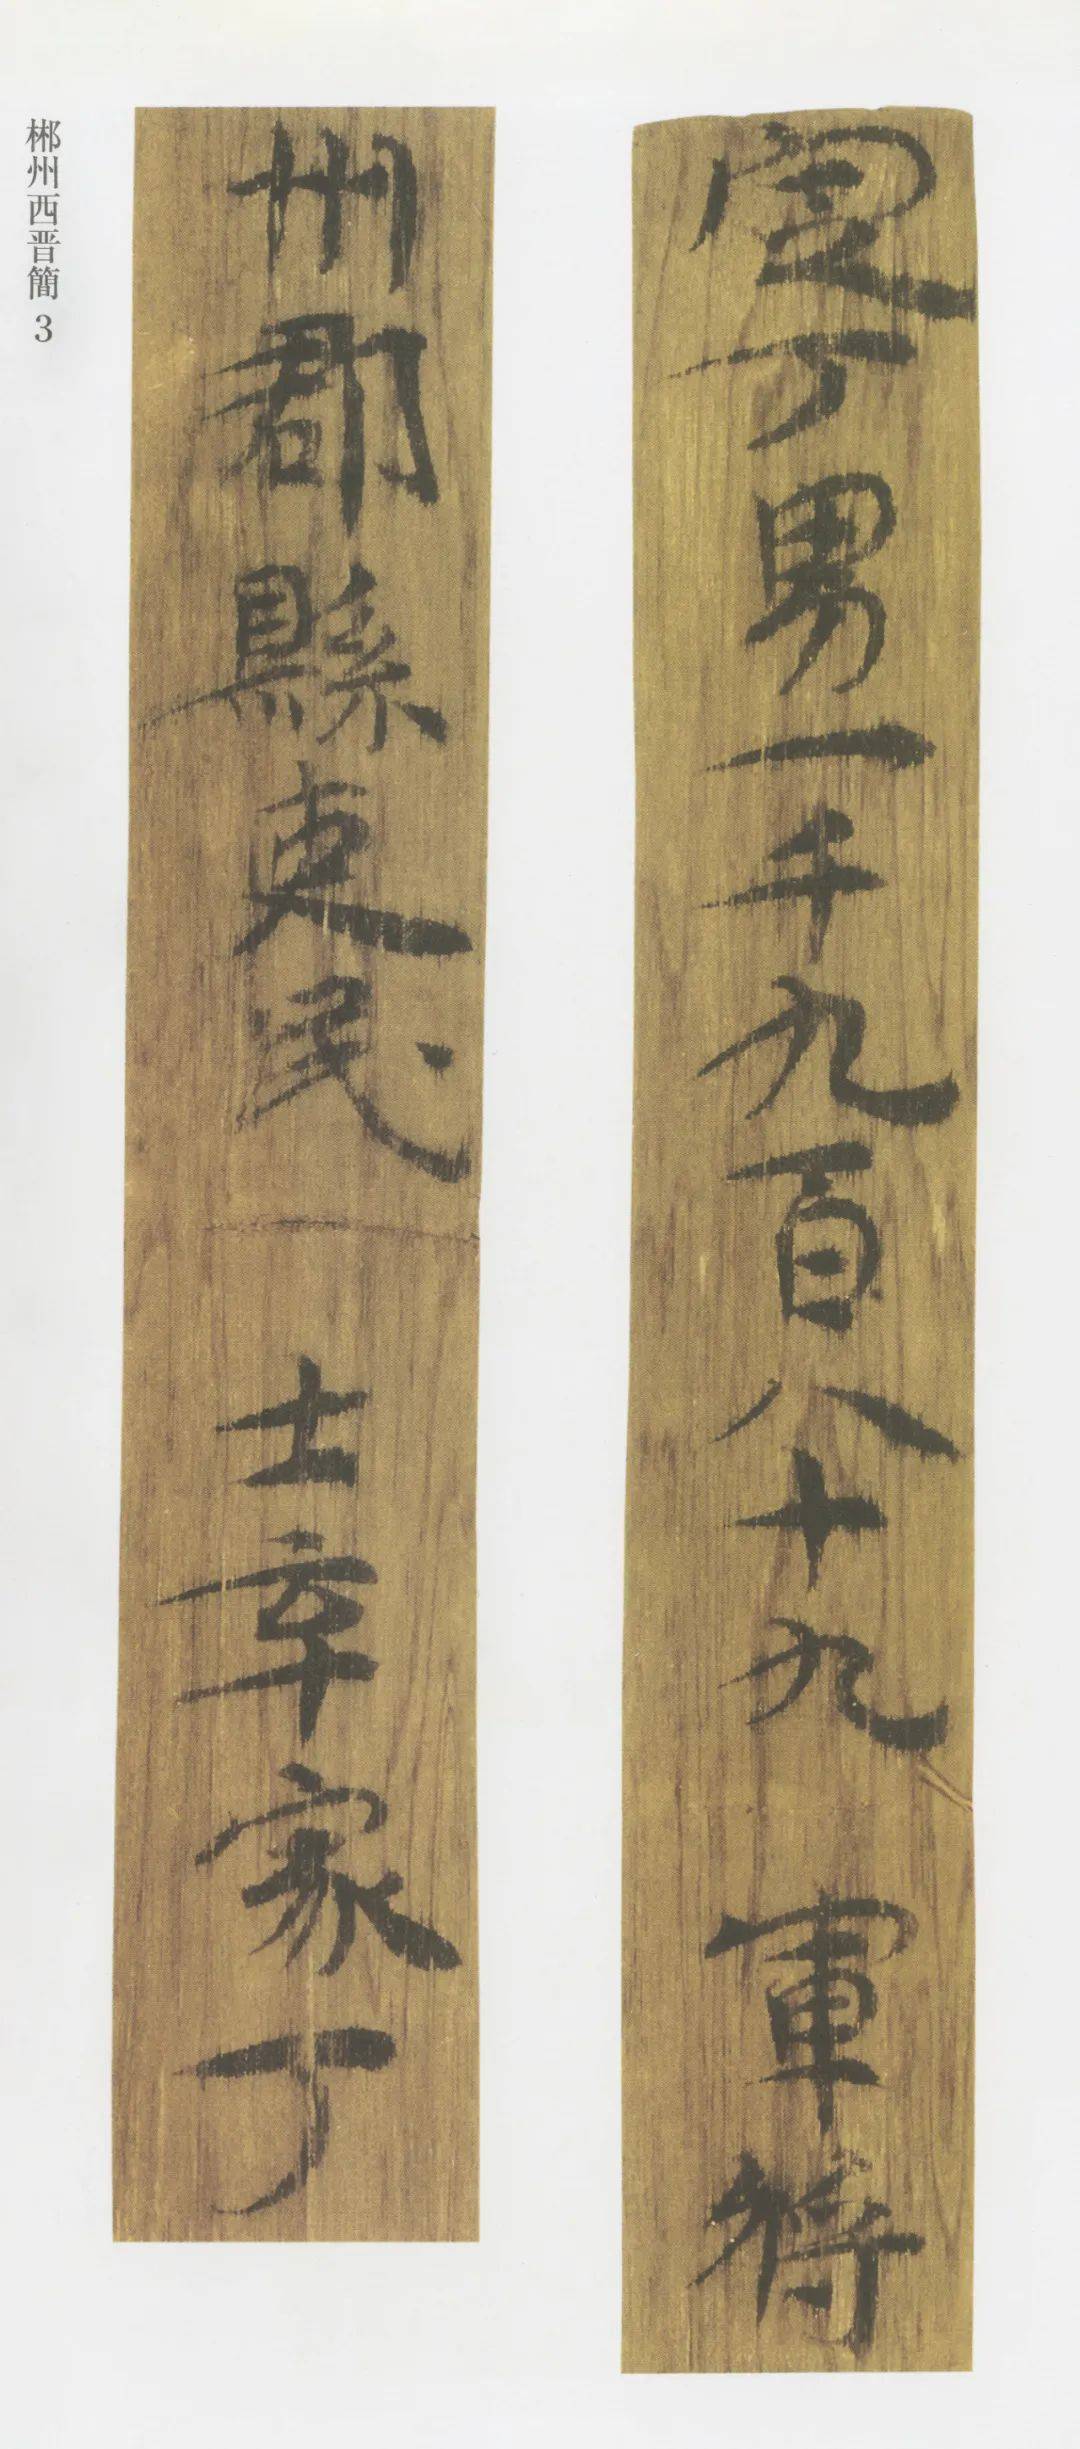 定丁男一千九百八十九 軍將
州郡縣吏民 士卒家丁
郴州西晋簡 3